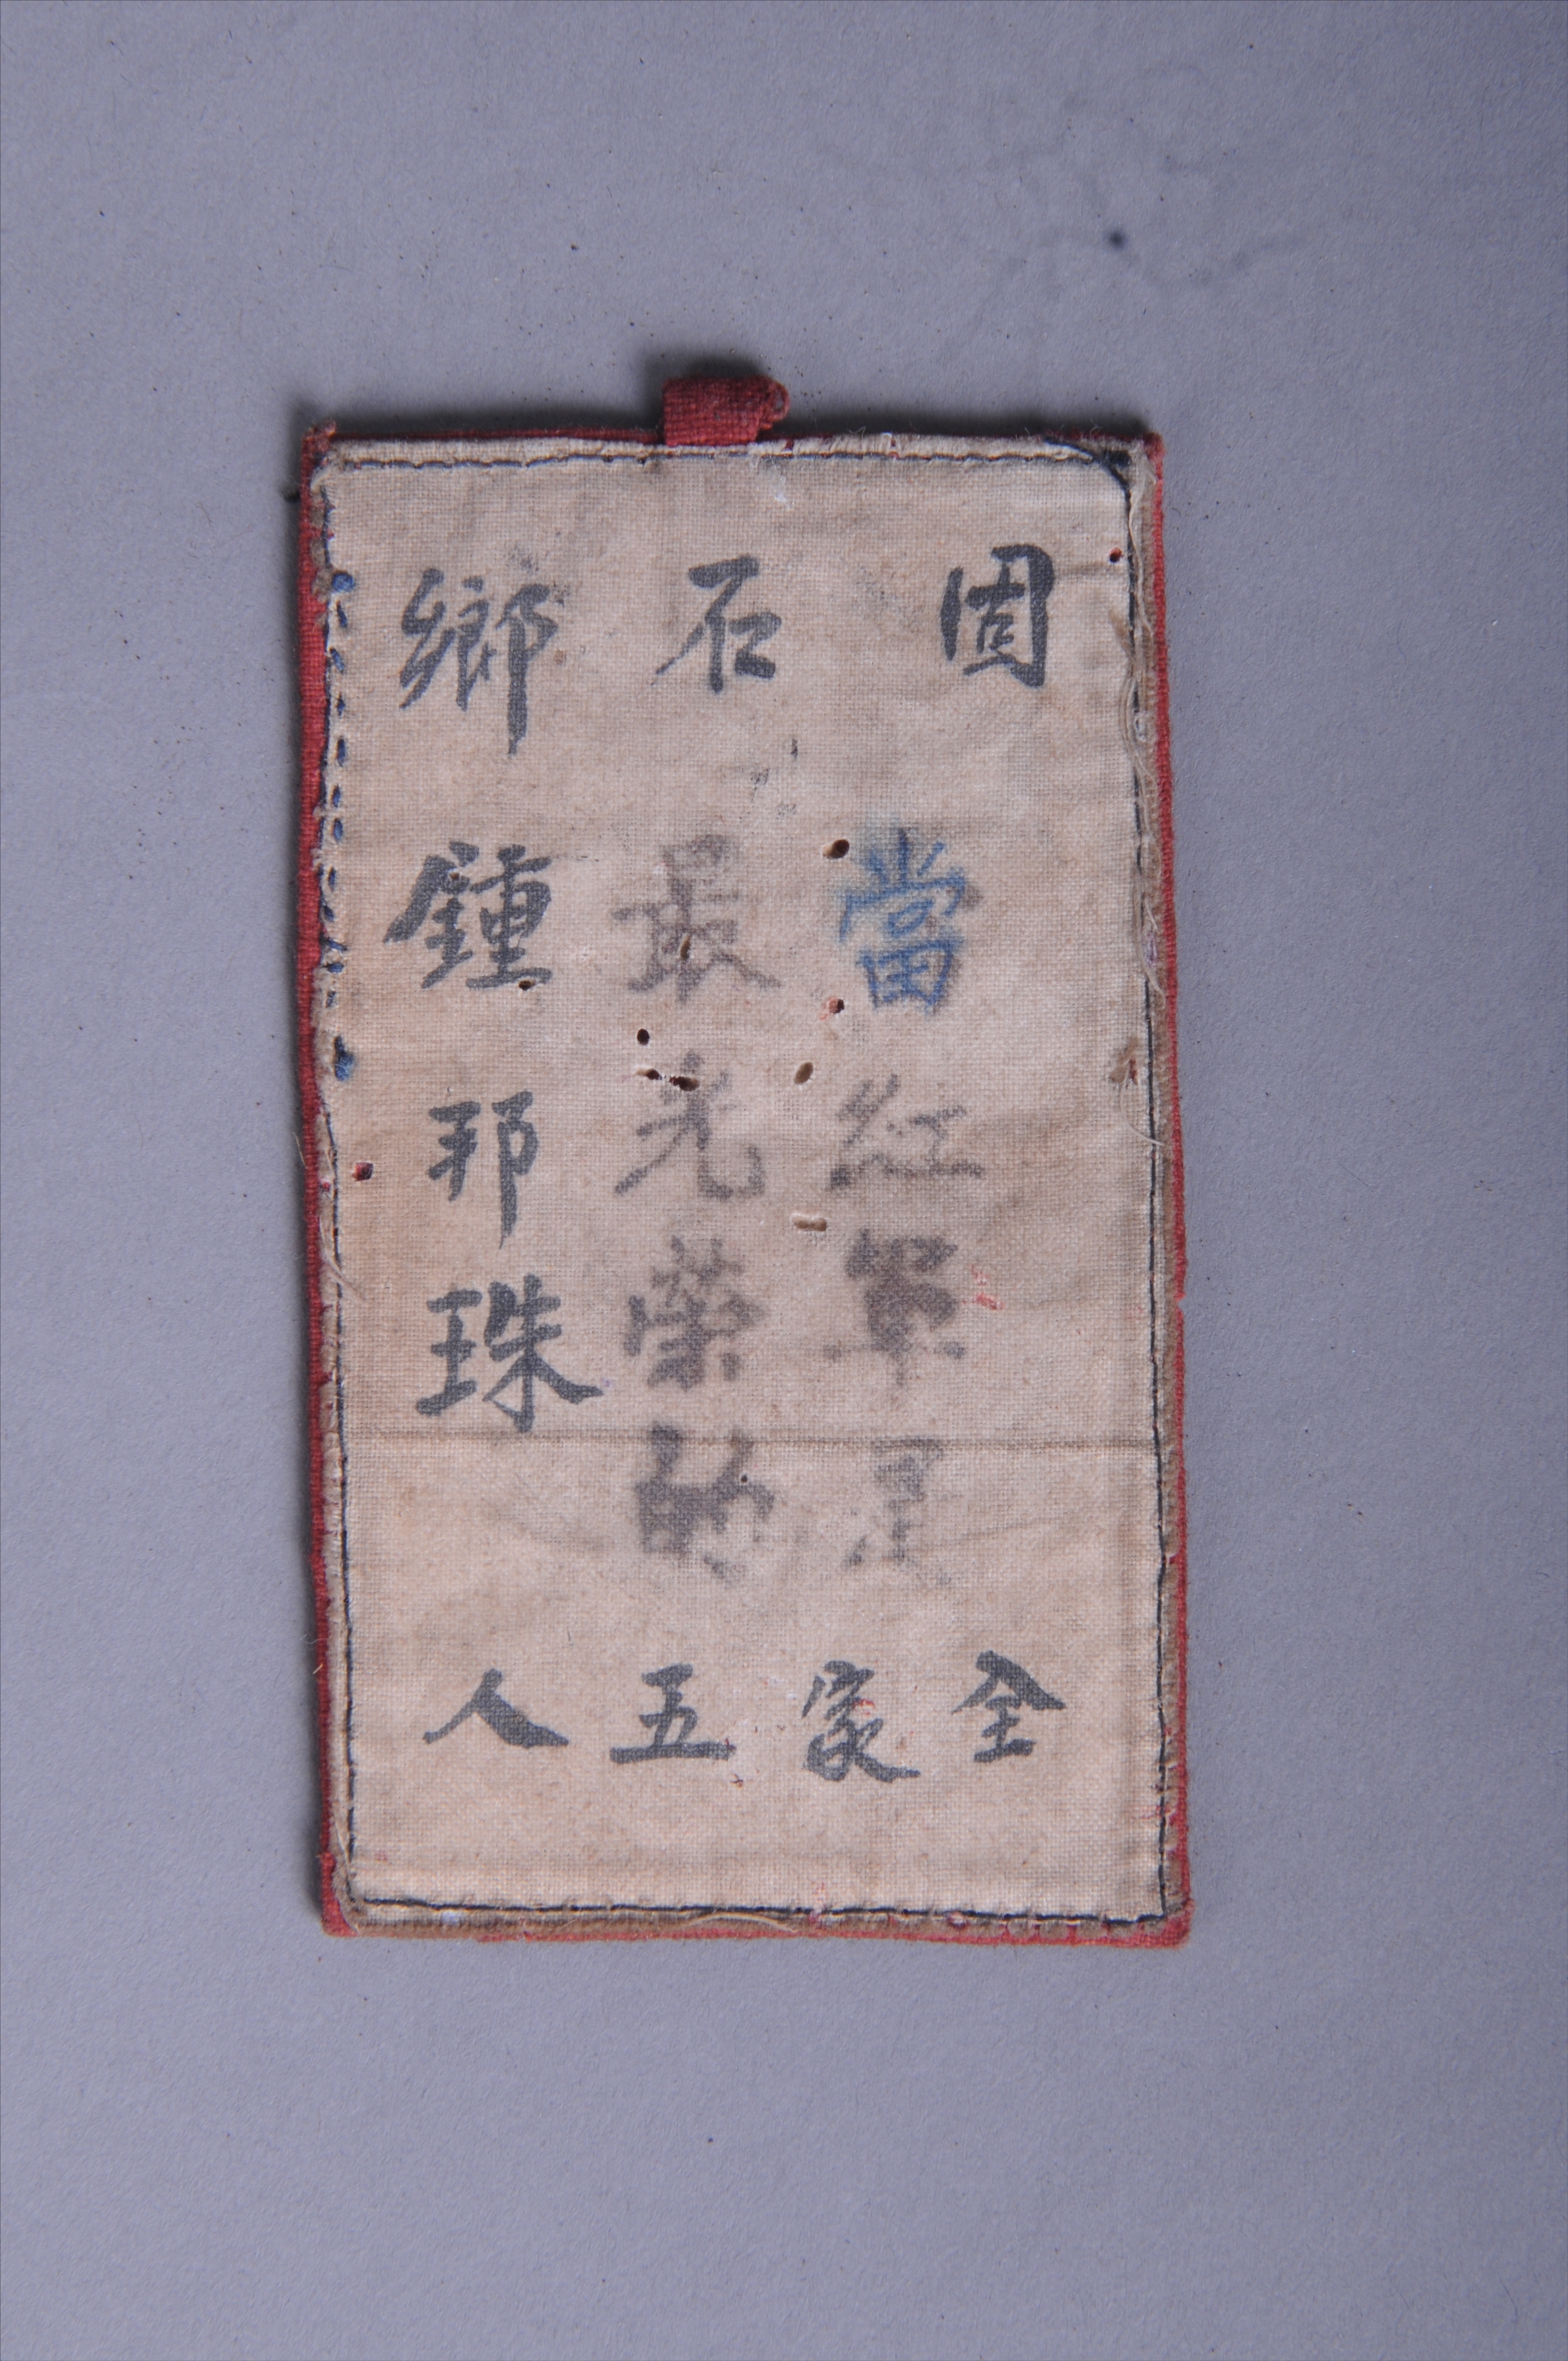 固石鄉
當紅軍是
最光榮的
鍾邦珠
全家五人